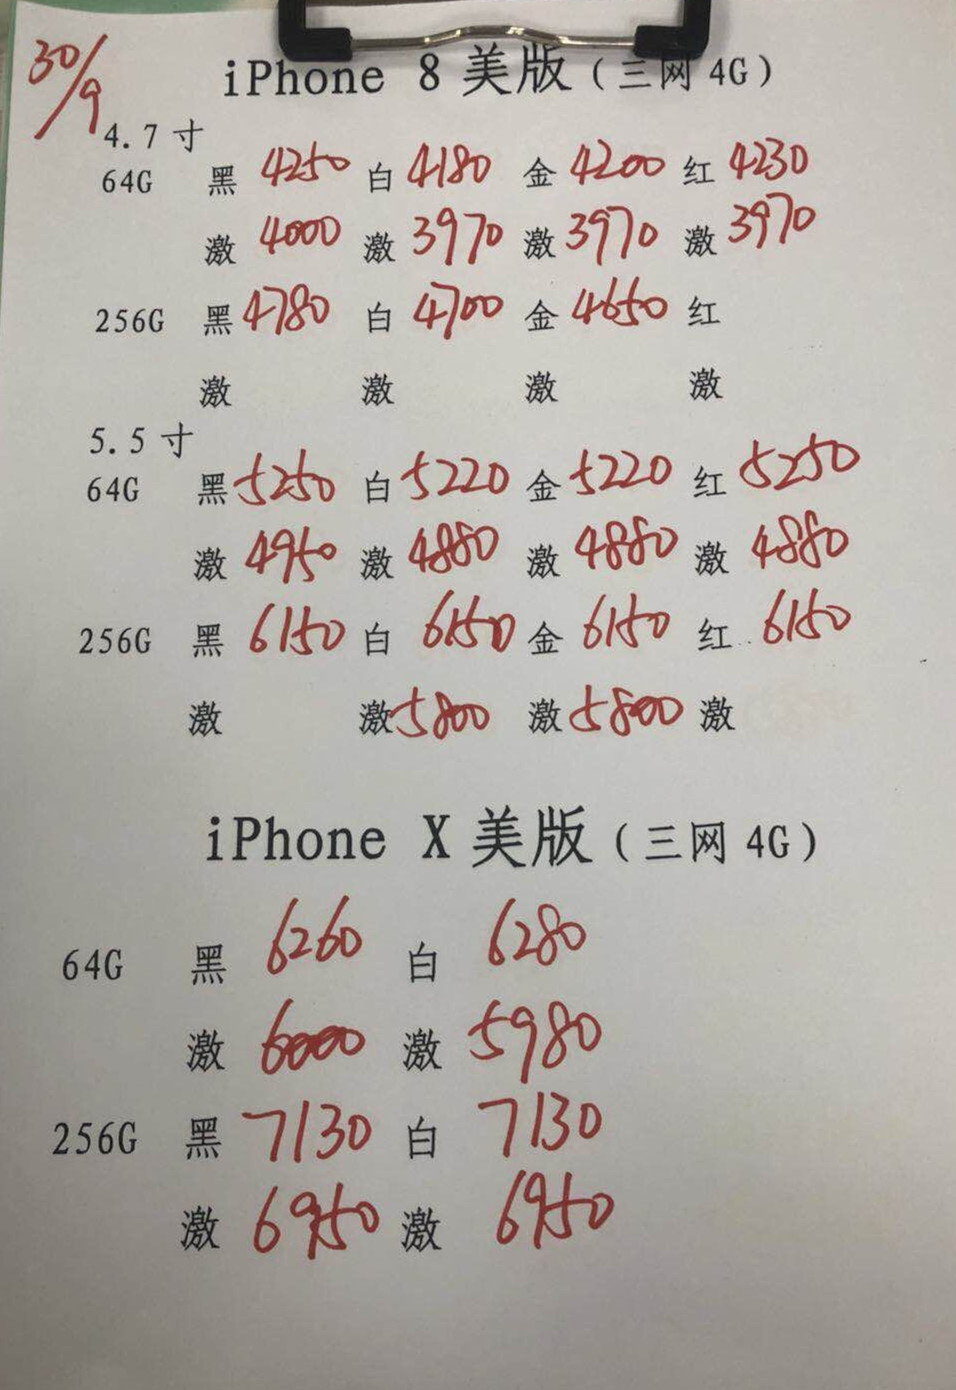 30/9
iPhone 8 美版（三网 4G）
4.7 寸
64G 黑 4250 白 4180 金 4200 红 4230
激 4000 激 3970 激 3970 激 3970
256G 黑 4780 白 4700 金 4650 红
激 激 激 激
5.5 寸
64G 黑 5250 白 5220 金 5220 红 5250
激 4950 激 4880 激 4880 激 4880
256G 黑 6150 白 6150 金 6150 红 6150
激 激 5800 激 5800 激
iPhone X 美版（三网 4G）
64G 黑 6260 白 6280
激 6000 激 5980
256G 黑 7130 白 7130
激 6950 激 6950